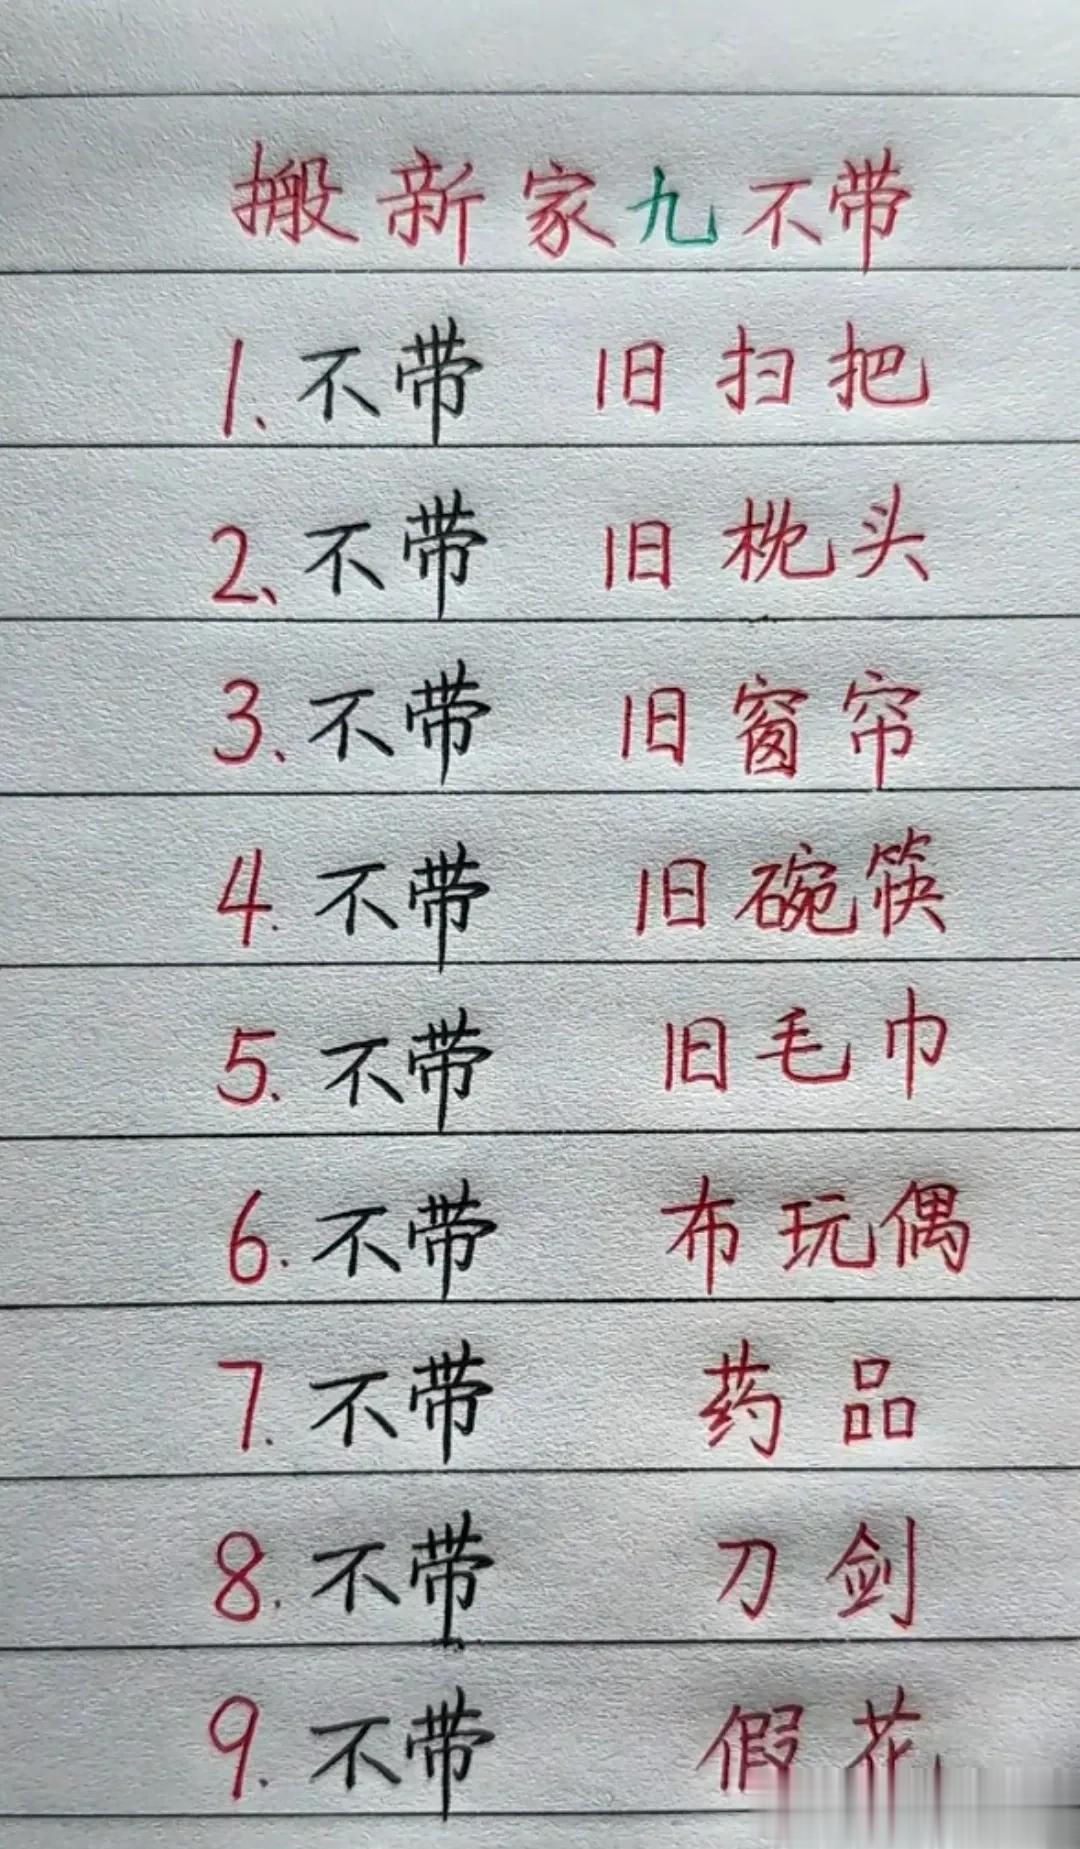 搬新家九不带
1、不带 旧扫把
2、不带 旧枕头
3、不带 旧窗帘
4.不带 旧碗筷
5.不带 旧毛巾
6.不带 布玩偶
7.不带 药品
8.不带 刀剑
9.不带 假花